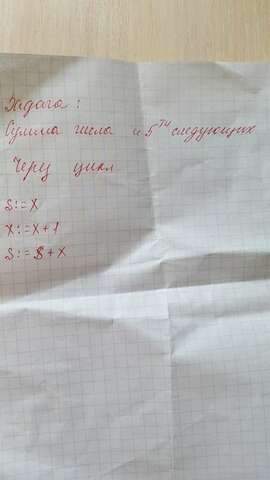 Задача:
Сумма числа и 5ти следующих
Через цикл
S:=X
X:=X+1
S:=S+X